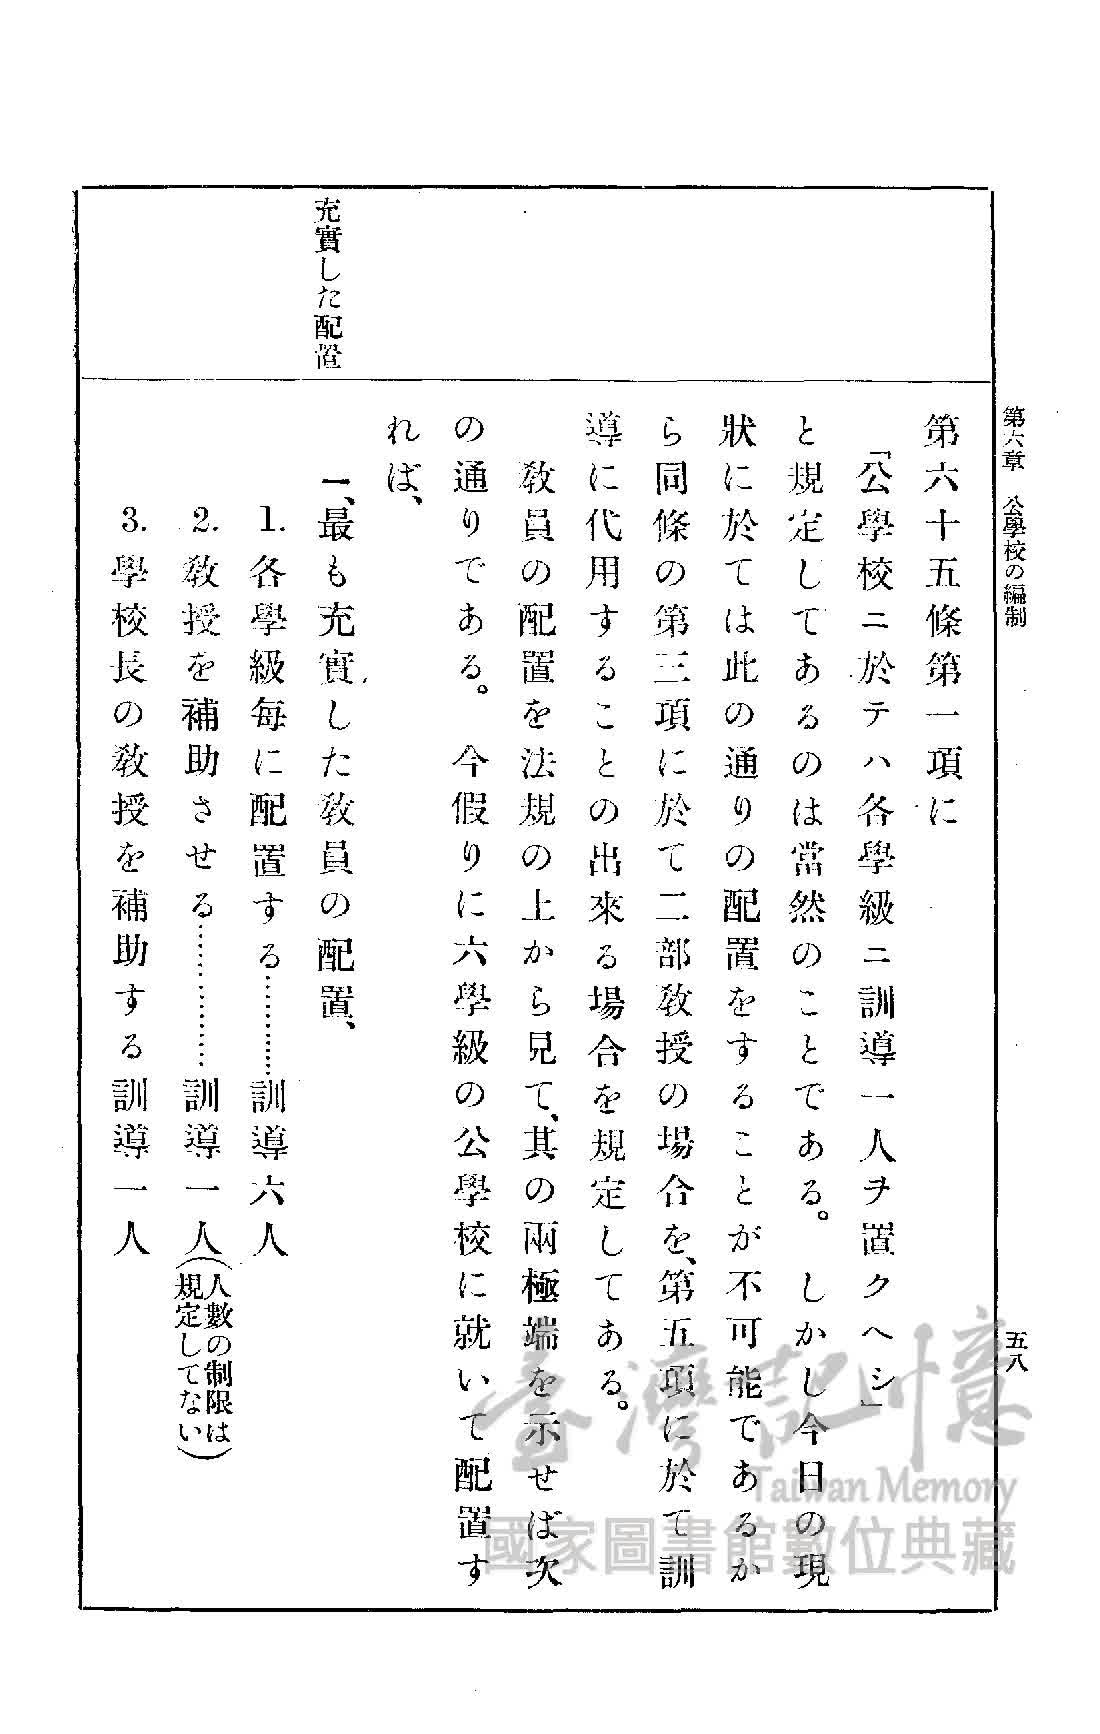 第六章 公學校の編制
五八
充實した配置
第六十五條第一項に
「公學校ニ於テハ各學級ニ訓導一人ヲ置クヘシ」
と規定してあるのは當然のことである。しかし今日の現
狀に於ては此の通りの配置をすることが不可能であるか
ら同條の第三項に於て二部敎授の場合を、第五項に於て訓
導に代用することの出來る場合を規定してある。
敎員の配置を法規の上から見て、其の兩極端を示せば次
の通りである。今假りに六學級の公學校に就いて配置す
れば、
一、最も充實した敎員の配置、
1. 各學級每に配置する…………訓導六人
2. 敎授を補助させる……………訓導一人(人數の制限は規定してない)
3. 學校長の敎授を補助する訓導一人
臺灣記憶
Taiwan Memory
國家圖書館數位典藏